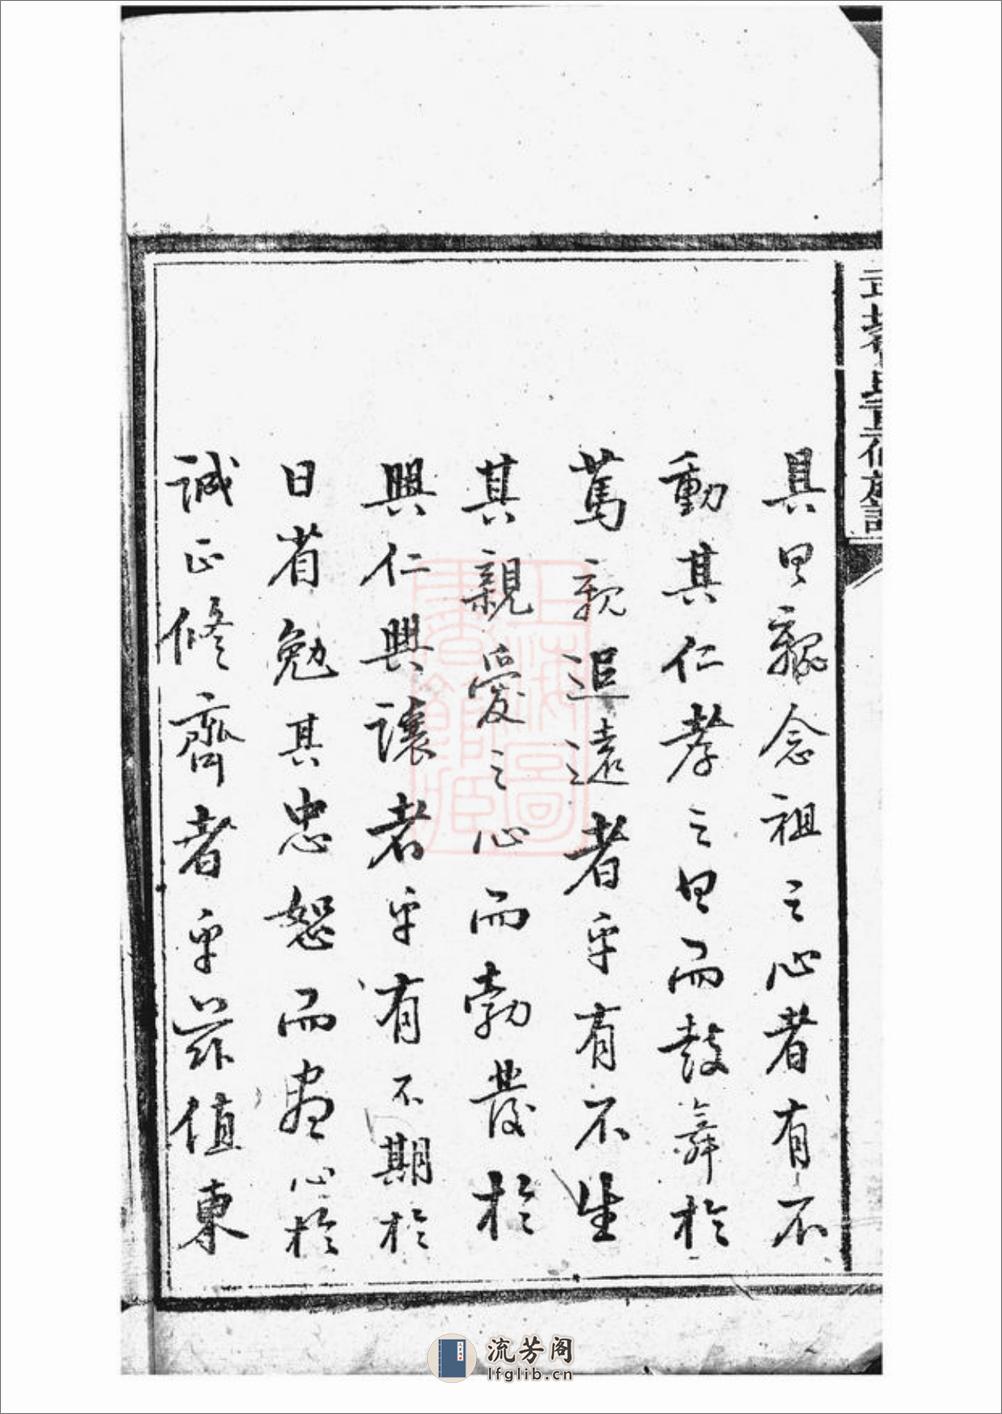 具思親念祖之心者有不
動其仁孝之思而鼓舞於
篤親追遠者乎有不生
其親愛之心而勃發於
興仁興讓者乎有不期於
日省勉其忠恕而盡心於
誠正修齊者乎茲值東
上海圖書館藏
流芳阁
lfglib.cn